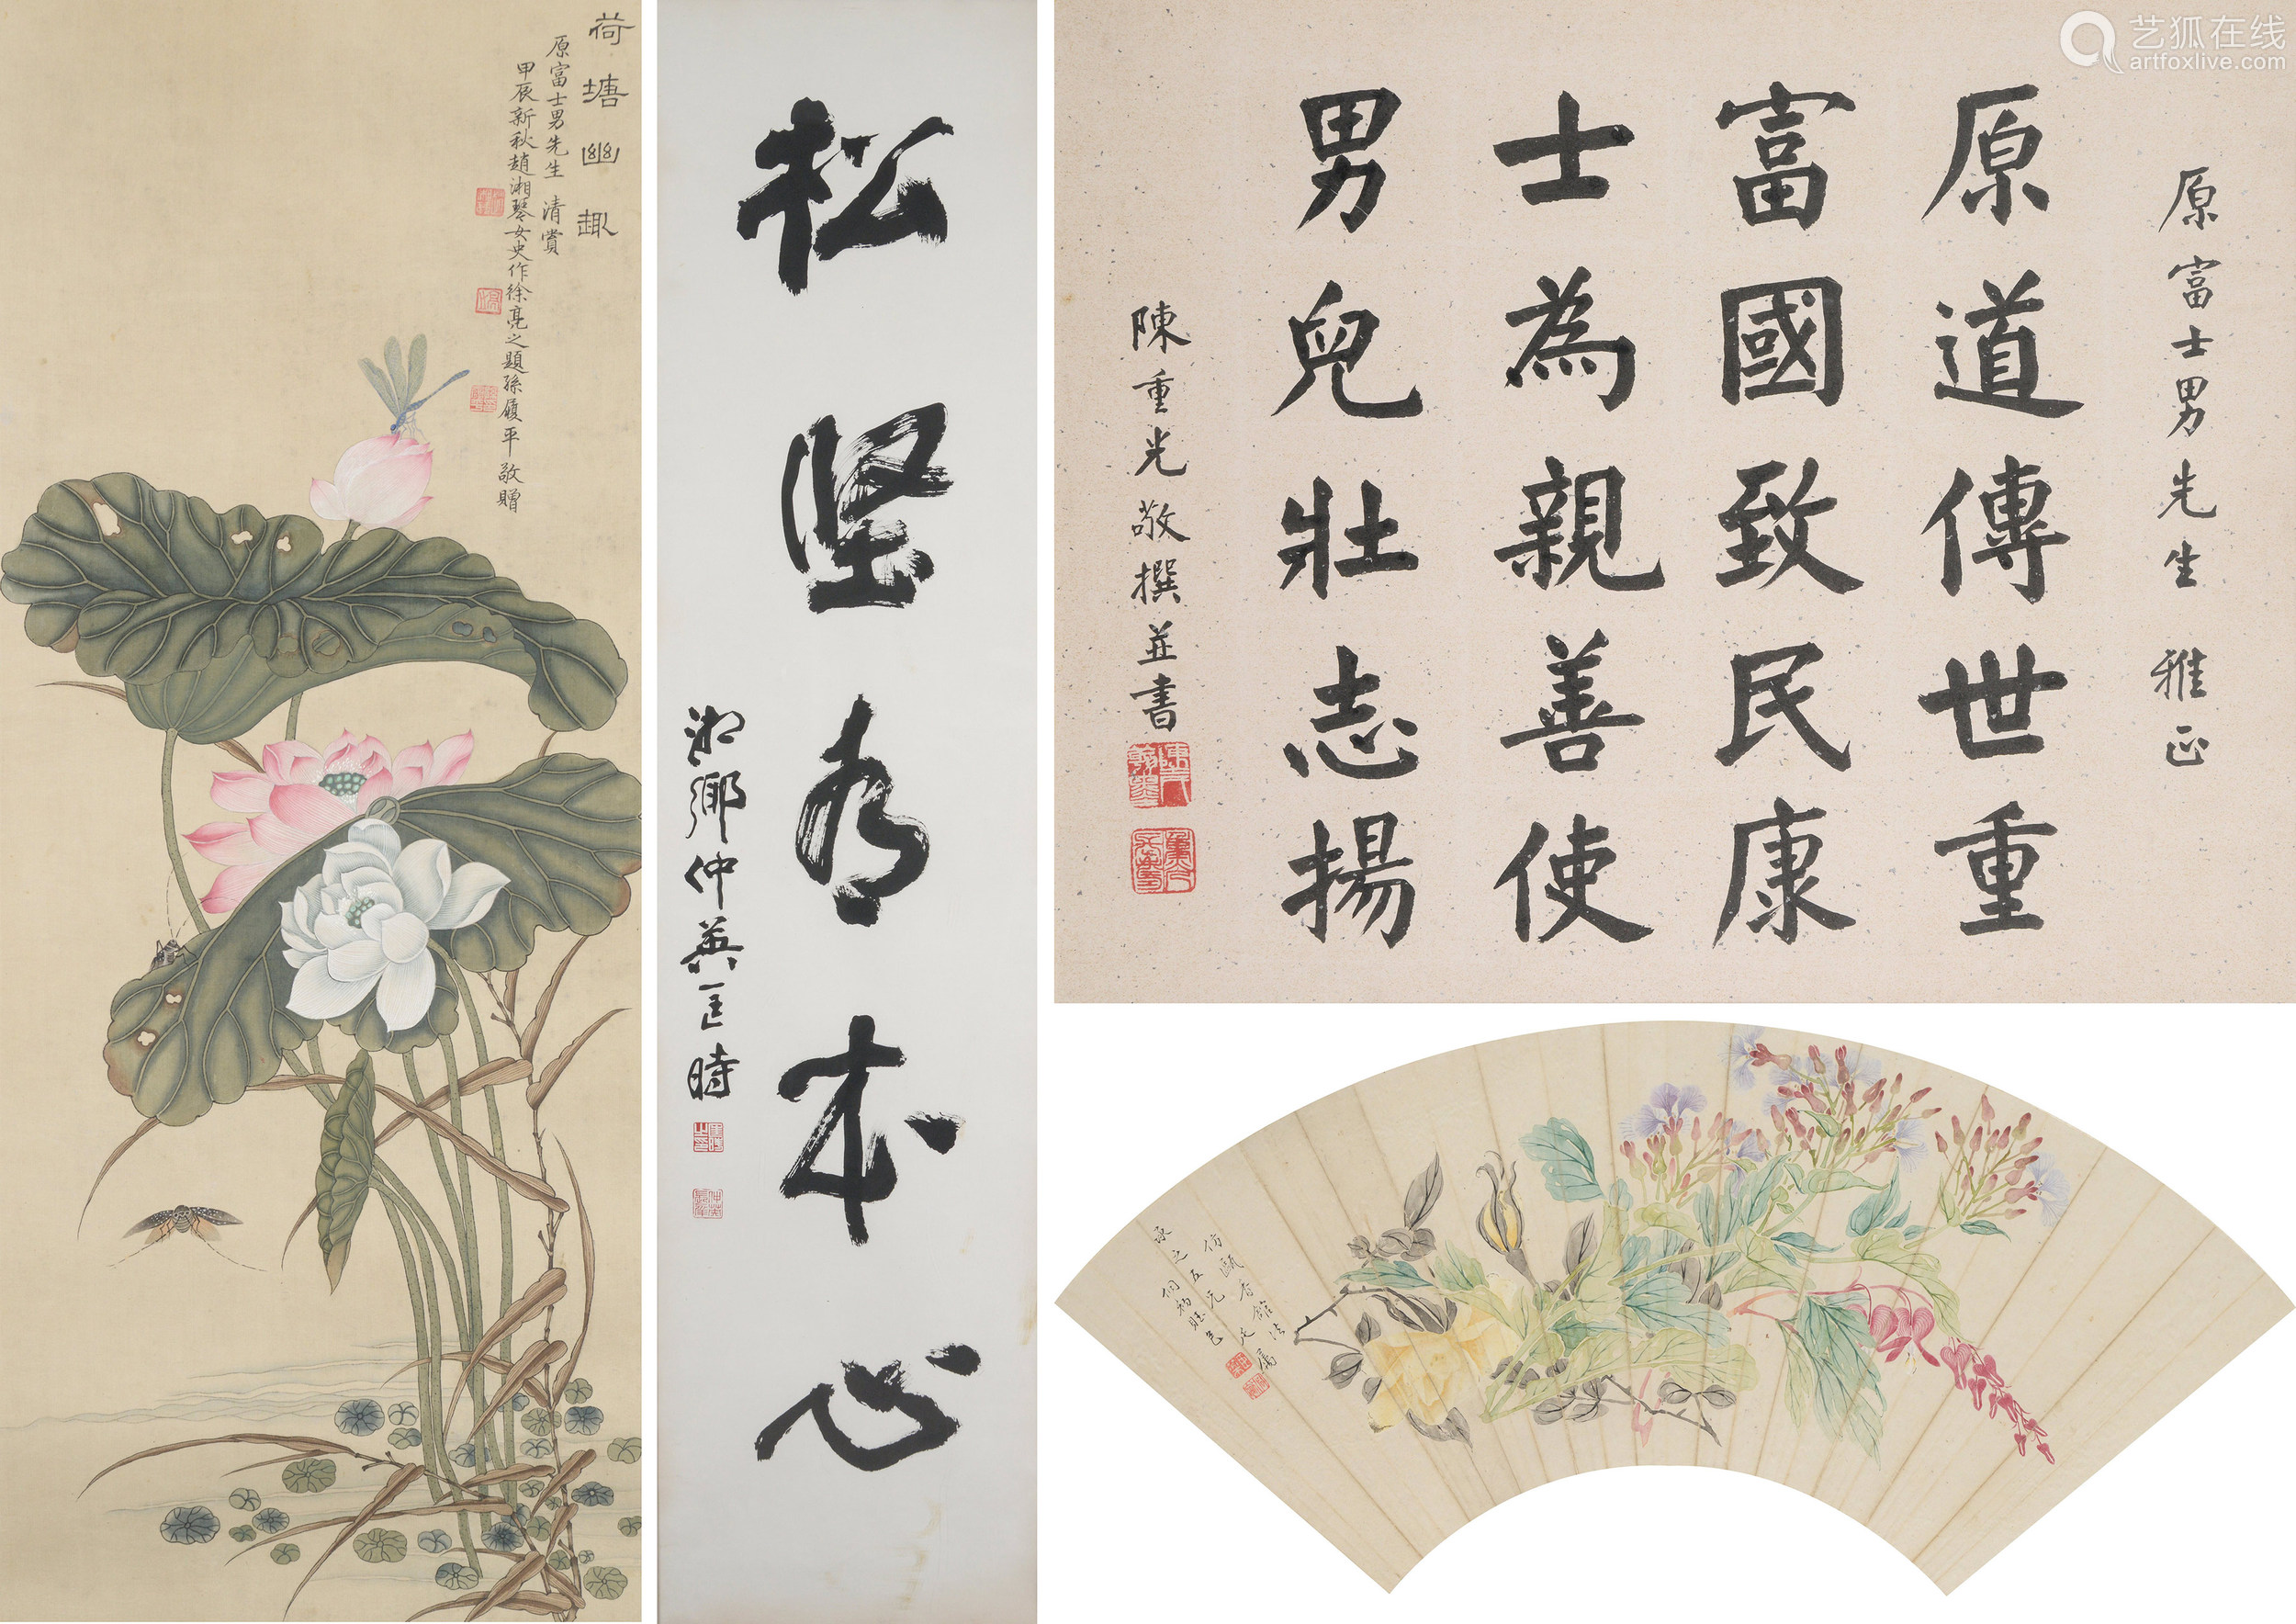 荷塘幽趣
原富士男先生 清賞
甲辰新秋趙湘琴女史作徐亮之題孫履平敬贈
松坚为本心
湘鄉仲英匡時
原富士男先生 雅正
原道傳世重
富國致民康
士為親善使
男兒壯志揚
陳重光敬撰並書
仿甌香館法
承之五兄
艺狐在线
artfoxlive.com